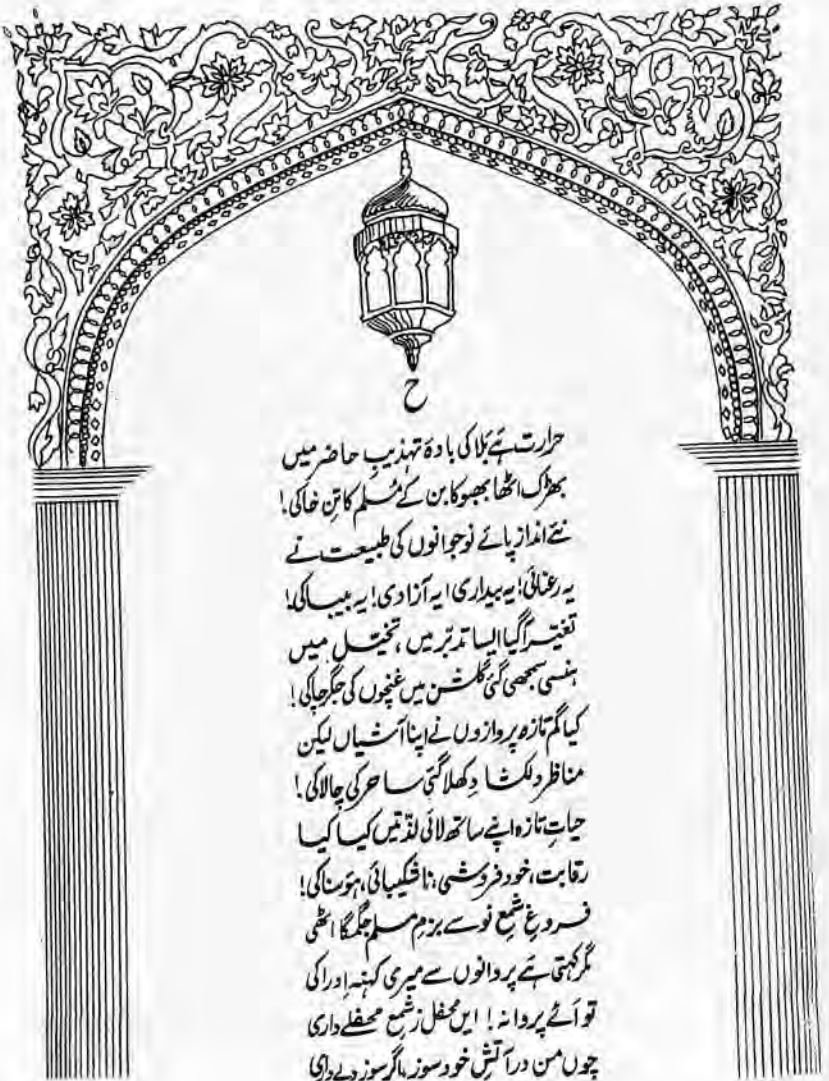 ح
حرارت ہے بلا کی بادۂ تہذیبِ حاضر میں
بھڑک اٹھا بھبوکا بن کے مُسلم کا تنِ خاکی!
نئے انداز پائے نوجوانوں کی طبیعت نے
یہ رعنائی! یہ بیداری! یہ آزادی! یہ بیباکی!
تغیّر آ گیا ایسا تدبّر میں، تخیّل میں
ہنسی سمجھی گئی گلشن میں غنچوں کی جگر چاکی!
کیا گم تازہ پروازوں نے اپنا آشیاں لیکن
مناظر دلکشا دِکھلا گئی ساحر کی چالاکی!
حیاتِ تازہ اپنے ساتھ لائی لذّتیں کیا کیا
رقابت، خودفروشی، ناشکیبائی، ہوَسناکی!
فروغِ شمعِ نو سے بزمِ مسلم جگمگا اٹھی
مگر کہتی ہے پروانوں سے میری کہنہ اِدراکی
تو اَے پروانہ! ایں محفل زشمعِ محفلے داری
چوں من در آتشِ خود سوز، اگر سوزِ دلے داری